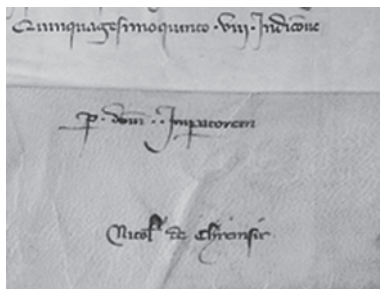 Quinquagesimoquinto · viii · Indic̄one
p · dom̄ · · Imꝑatorem
Nicol̄ de Chremsir